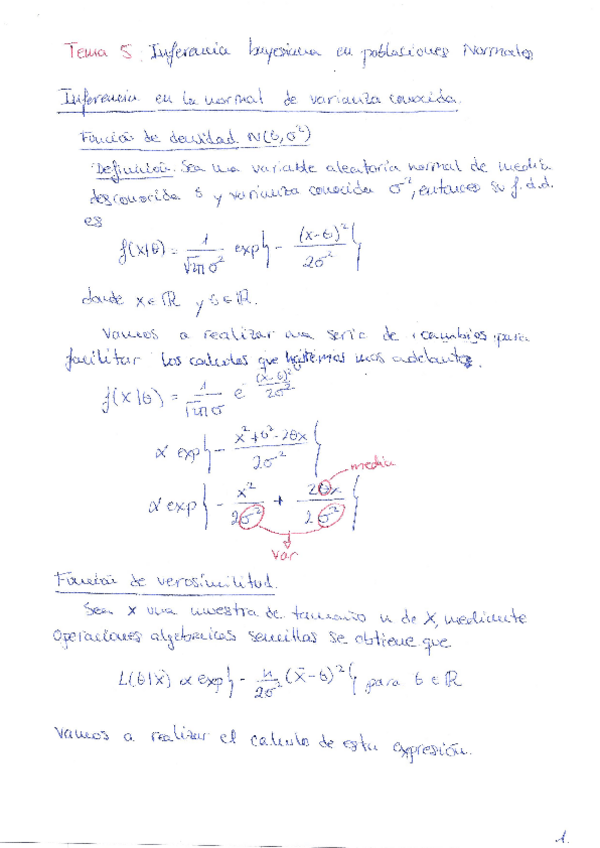 Tema 5. Inferencia bayesiana en poblaciones Normales
Inferencia en la normal de varianza conocida.
Función de densidad N(θ, σ²)
Definición. Sea una variable aleatoria normal de media
desconocida θ y varianza conocida σ², entonces su f.d.d.
es
f(x|θ) = 1/√2π σ² exp{ - (x-θ)²/2σ² }
donde x ∈ ℝ y θ ∈ ℝ.
Vamos a realizar una serie de cambios para
facilitar los calculos que haremos mas adelante.
f(x|θ) = 1/√2π σ e (x-θ)²/2σ²
∝ exp{ - x²+θ²-2θx/2σ² }
media
∝ exp{ - x²/2σ² + 2θx/2σ² }
var
Función de verosimilitud.
Sea x una muestra de tamaño n de X, mediante
operaciones algebraicas sencillas se obtiene que
L(θ|x̄) ∝ exp{ - n/2σ² (x̄-θ)² } para θ ∈ ℝ
Vamos a realizar el calculo de esta expresión.
1.